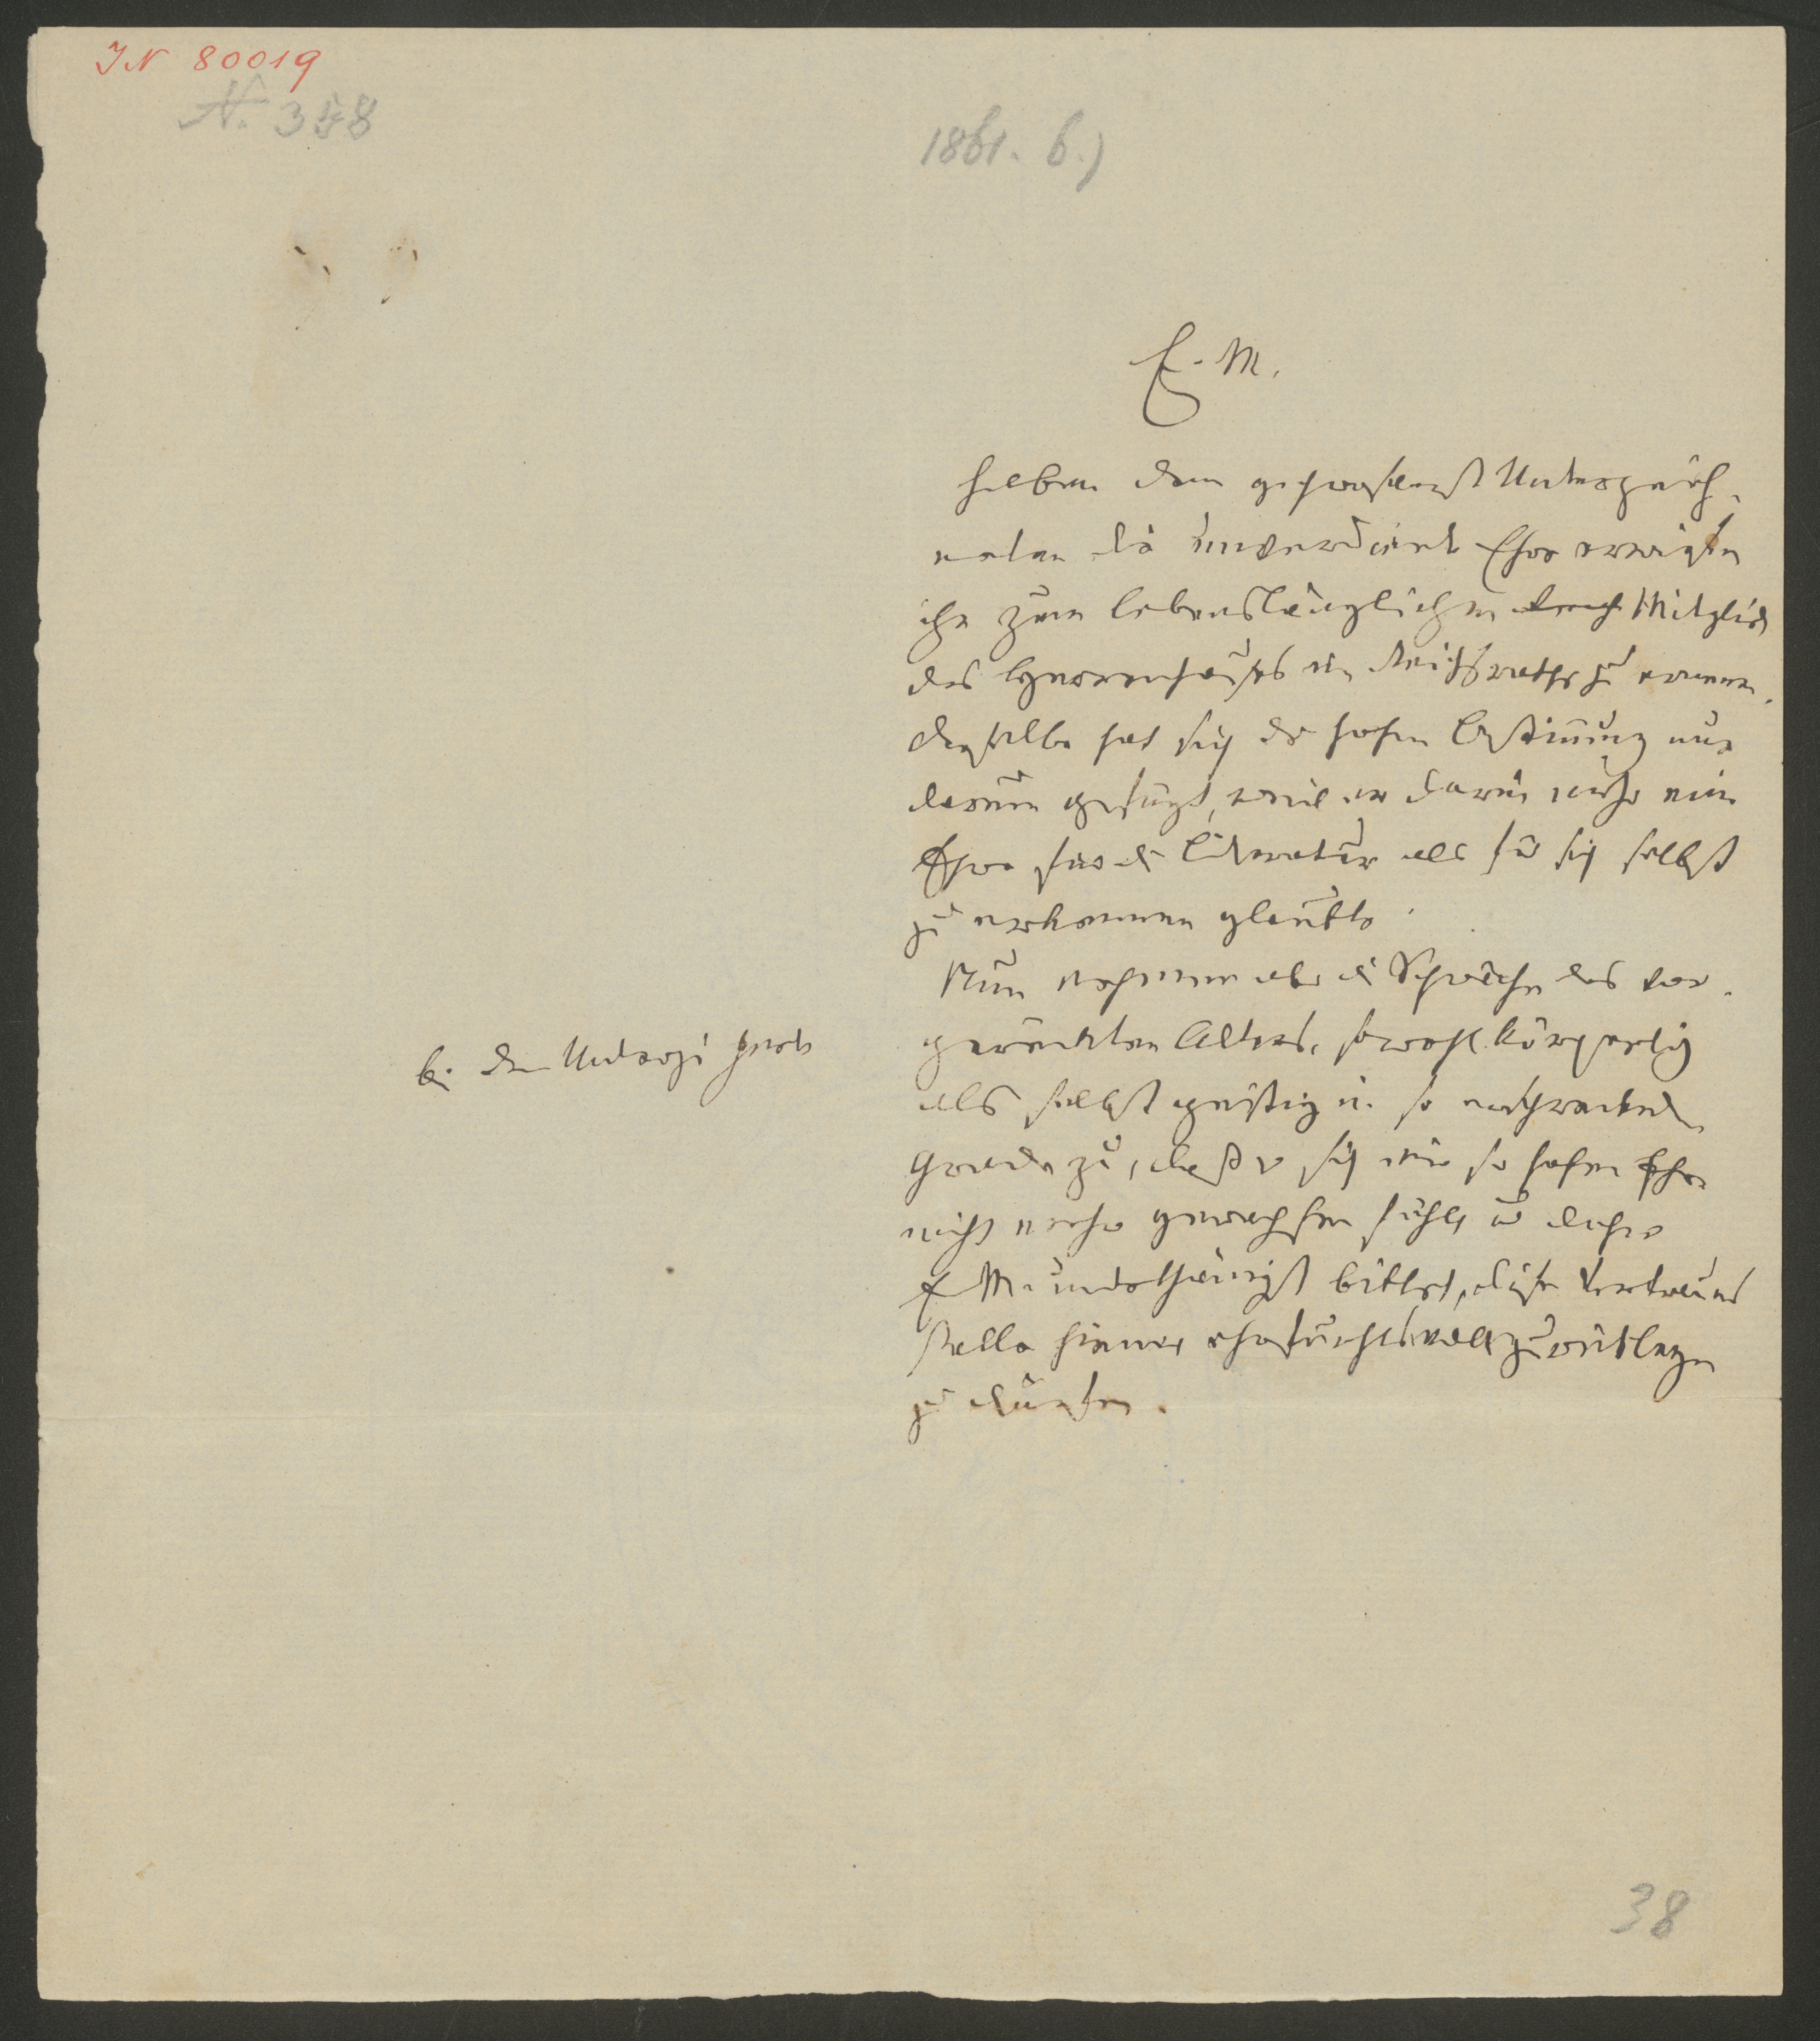 IN 80019
N. 358
1861. b.)
E. M.
haben dem gehorsamst Unterzeich-
neten die unverdiente Ehre erwiesen
ihn zum lebenslänglichen Mitglied
des Herrenhauses im Reichsrathe zu ernennen.
Derselbe hat sich der hohen Bestimmung nur
darum gefügt, weil er darin mehr eine
Ehre für die Literatur als für sich selbst
zu erkennen glaubte.
Nun nehmen aber die Schwäche des vor-
gerückten Alters, sowohl körperlich
bei dem Unterzei
als selbst geistig in so
Grade zu, daß er sich einer so hohen Ehre
nicht mehr gewachsen fühlt und daher
E M. unterthänigst bittet, diese
Stelle hiemit ehrfurchtsvoll zurücklegen
zu dürfen.
38